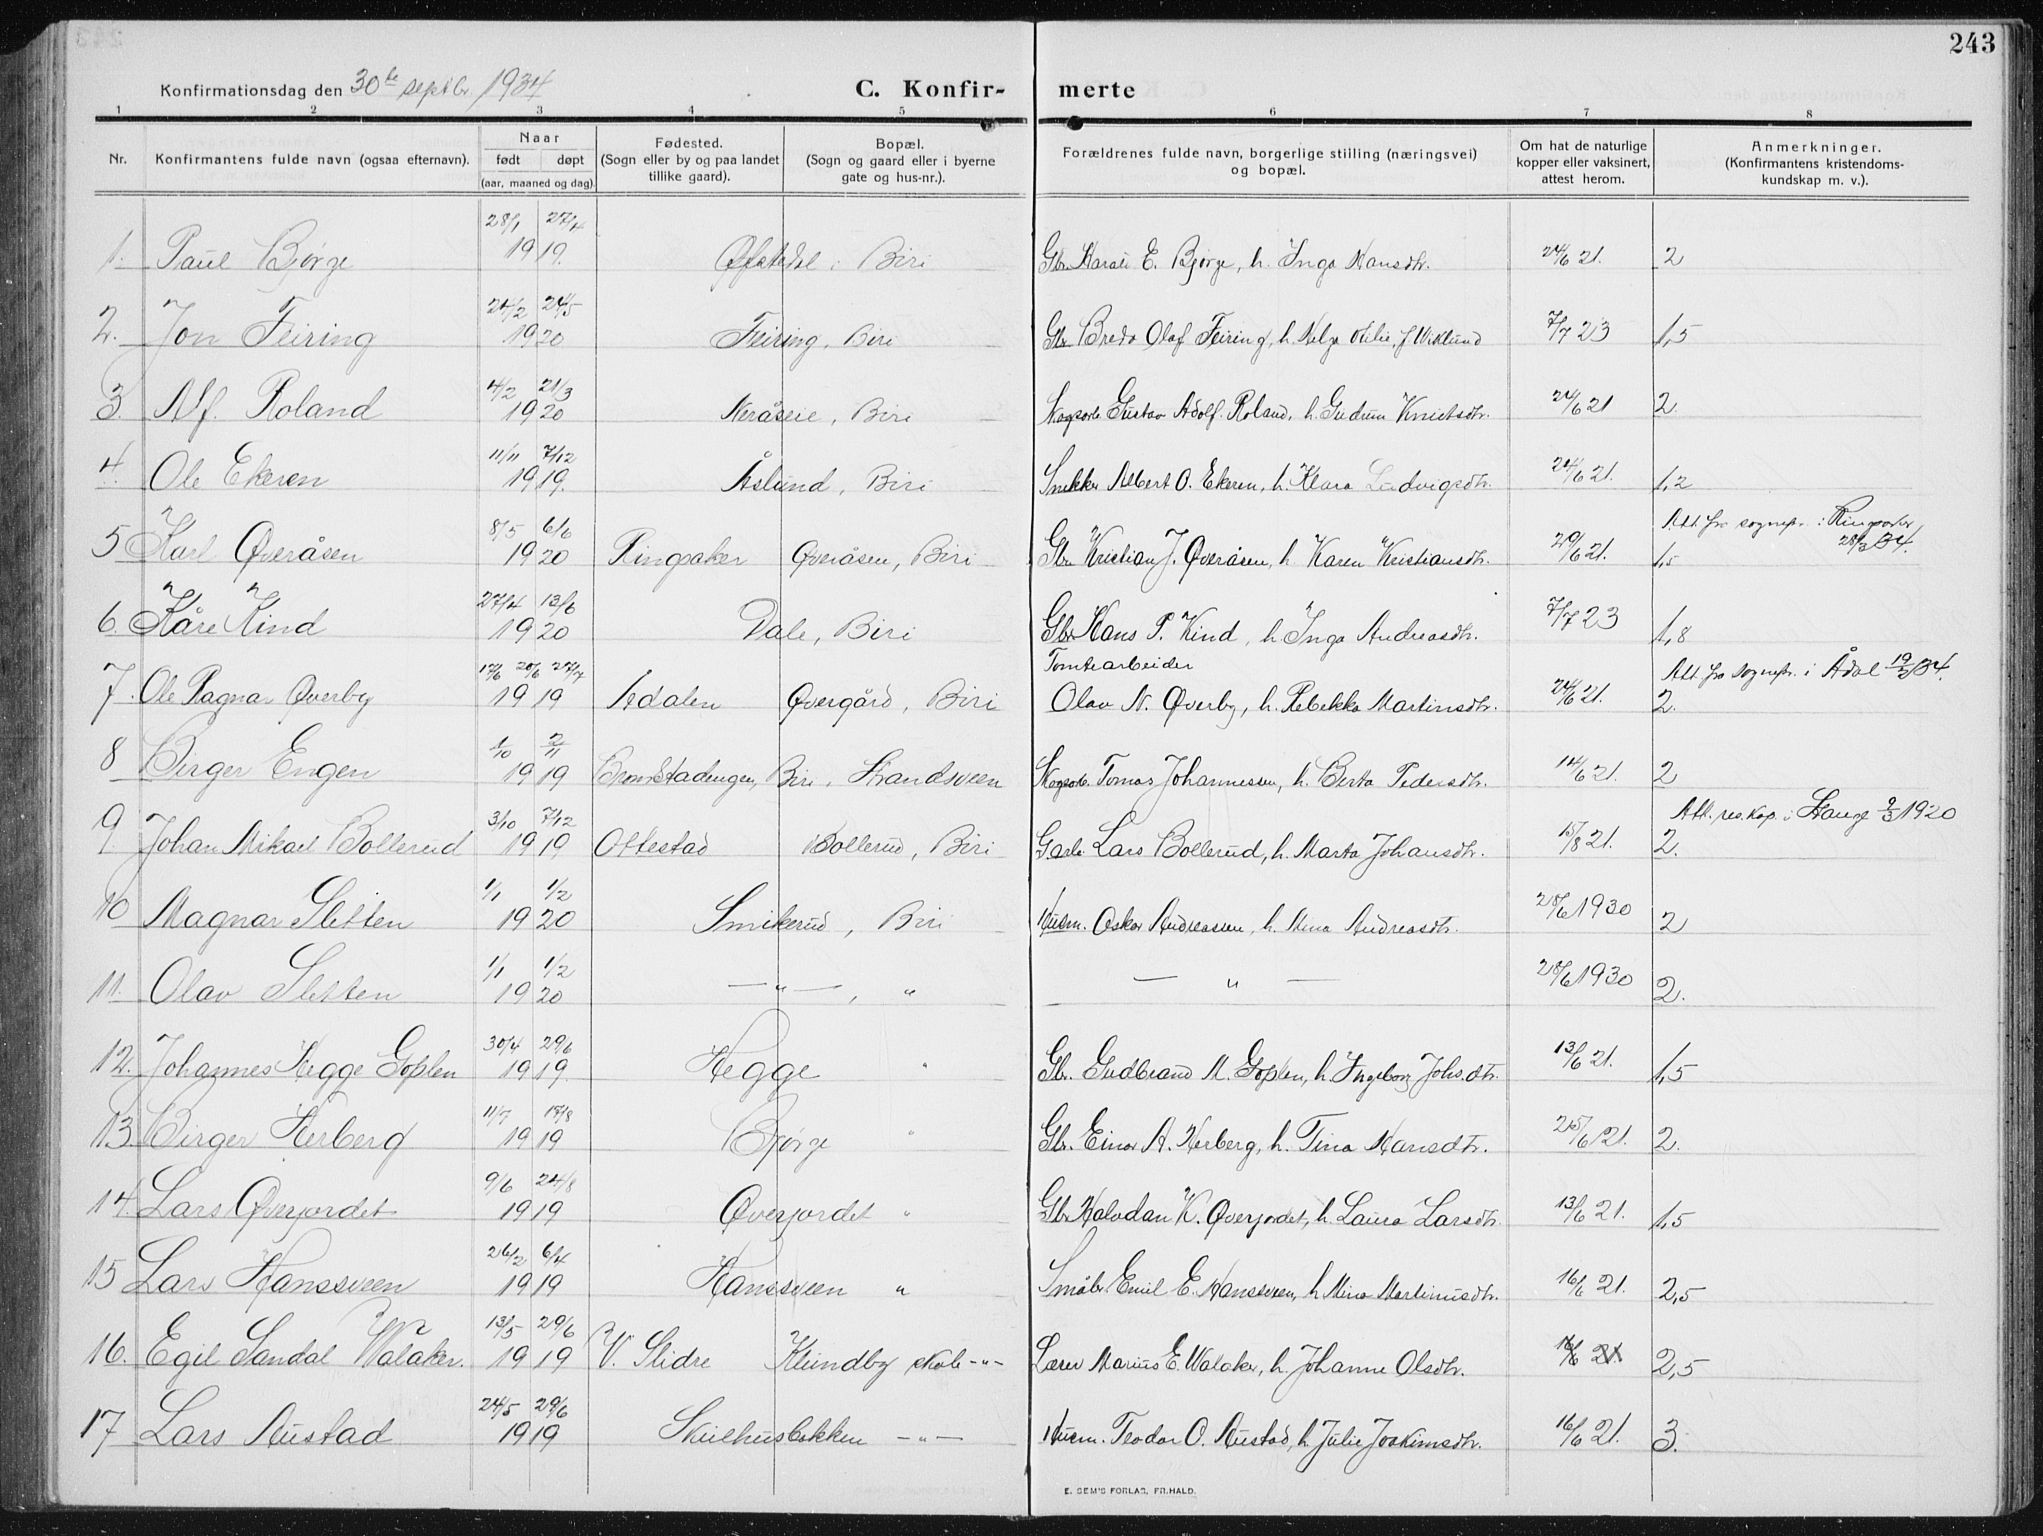 243
Konfirmationsdag den 30te septbr. 1934
C. Konfir- merte
1 2 3 4 5 6 7 8
Nr. Konfirmantens fulde navn (ogsaa efternavn). Naar født døpt (aar, maaned og dag). Fødested. (Sogn eller by og paa landet tillike gaard). Bopæl. (Sogn og gaard eller i byerne gate og hus-nr.). Forældrenes fulde navn, borgerlige stilling (næringsvei) og bopæl. Om hat de naturlige kopper eller vaksinert, attest herom. Anmerkninger. (Konfirmantens kristendoms-kundskap m. v.).
1. Paul Bjørge 28/1 27/4 1919. Øfstedal i Biri Gbr. E. Bjørge, h. Inga Hansdtr. 24/6 21. 2
2. Jon Feiring 24/2 24/5 1920 Feiring, Biri Gbr. Bredo Olaf Feiring, h. Helga Otilie, f. Wiklund 7/7 23 1,5
3. Alf. Roland 4/2 21/3 1920 Neråseie, Biri Skogsarb. Gustav Adolf Roland, h. Gudrun Knutsdtr. 24/6 21 2
4. Ole Ekeren 11/11 7/12 1919. Åslund, Biri Snekker Albert O. Ekeren, h. Klara Ludvigsdtr. 24/6 21. 1,2
5 Karl Øveråsen 8/5 6/6 1920 Ringsaker Øveråsen, Biri Gbr. Kristian J. Øveråsen, h. Karen Kristiansdtr. 29/6 21. Att. fra sognepr. i Ringsaker 28/3 34. 1,5
6. Kåre Kind 27/4 13/6 1920 Dale, Biri Gbr. Hans P. Kind, h. Inga Andreasdtr. 7/7 23 1,8
7. Ole Ragnar Øverby 17/6 20/6 27/7 1919 Ådalen Øvergård, Biri Tomtearbeider Olav N. Øverby, h. Rebekka Martinsdtr. 24/6 21. Att. fra sognepr. i Ådal 19/3 34. 2.
8 Birger Engen 1/10 2/11 1919 Bronstadengen, Biri, Strandsveen Skogsarb. Tomas Johannessen, h. Berta Pedersdtr. 14/6 21. 2
9. Johan Mikael Bollerud 3/10 7/12 1919 Ottestad Bollerud, Biri G.arb. Lars Bollerud, h. Marta Johansdtr. 15/8 21. Att. res. kap. i Stange 9/3 1920 2.
10 Magnar Sletten 1/1 1/2 1920 Smikerud, Biri Husm. Oskar Andreassen, h. Mina Andreasdtr. 28/6 1930 2
11. Olav Sletten 1/1 1/2 1920 — " —, " — " — 28/6 1930 2.
12. Johannes Hegge Goplen 30/4 29/6 1919. Hegge " Gbr. Gudbrand M. Goplen, h. Ingeborg Johs.dtr. 13/6 21. 1,5
13. Birger Herberg 11/7 17/8 1919 Bjørge " Gbr. Einar A. Herberg, h. Tina Hansdtr. 25/6 21. 2.
14. Lars Øverjordet 9/6 24/8 1919 Øverjordet " Gbr. Halvdan K. Øverjordet, h. Laura Larsdtr. 13/6 21. 1,5
15 Lars Hanssveen 26/2 6/4 1919 Hanssveen " Småbr. Emil E. Hanssveen, h. Mina Martinusdtr. 16/6 21. 2,5
16. Egil Sandal Walaker. 13/5 29/6 1919 V. Slidre Klundby skole -"- Lærer Marius E. Walaker, h. Johanne Olsdtr. 16/6 21 2,5
17 Lars Austad 24/5 29/6 1919 Skulhusbakken — " — Husm. Teodor O. Austad, h. Julie Joakimsdtr. 16/6 21. 3.
E. SEM'S FORLAG, FR.HALD.